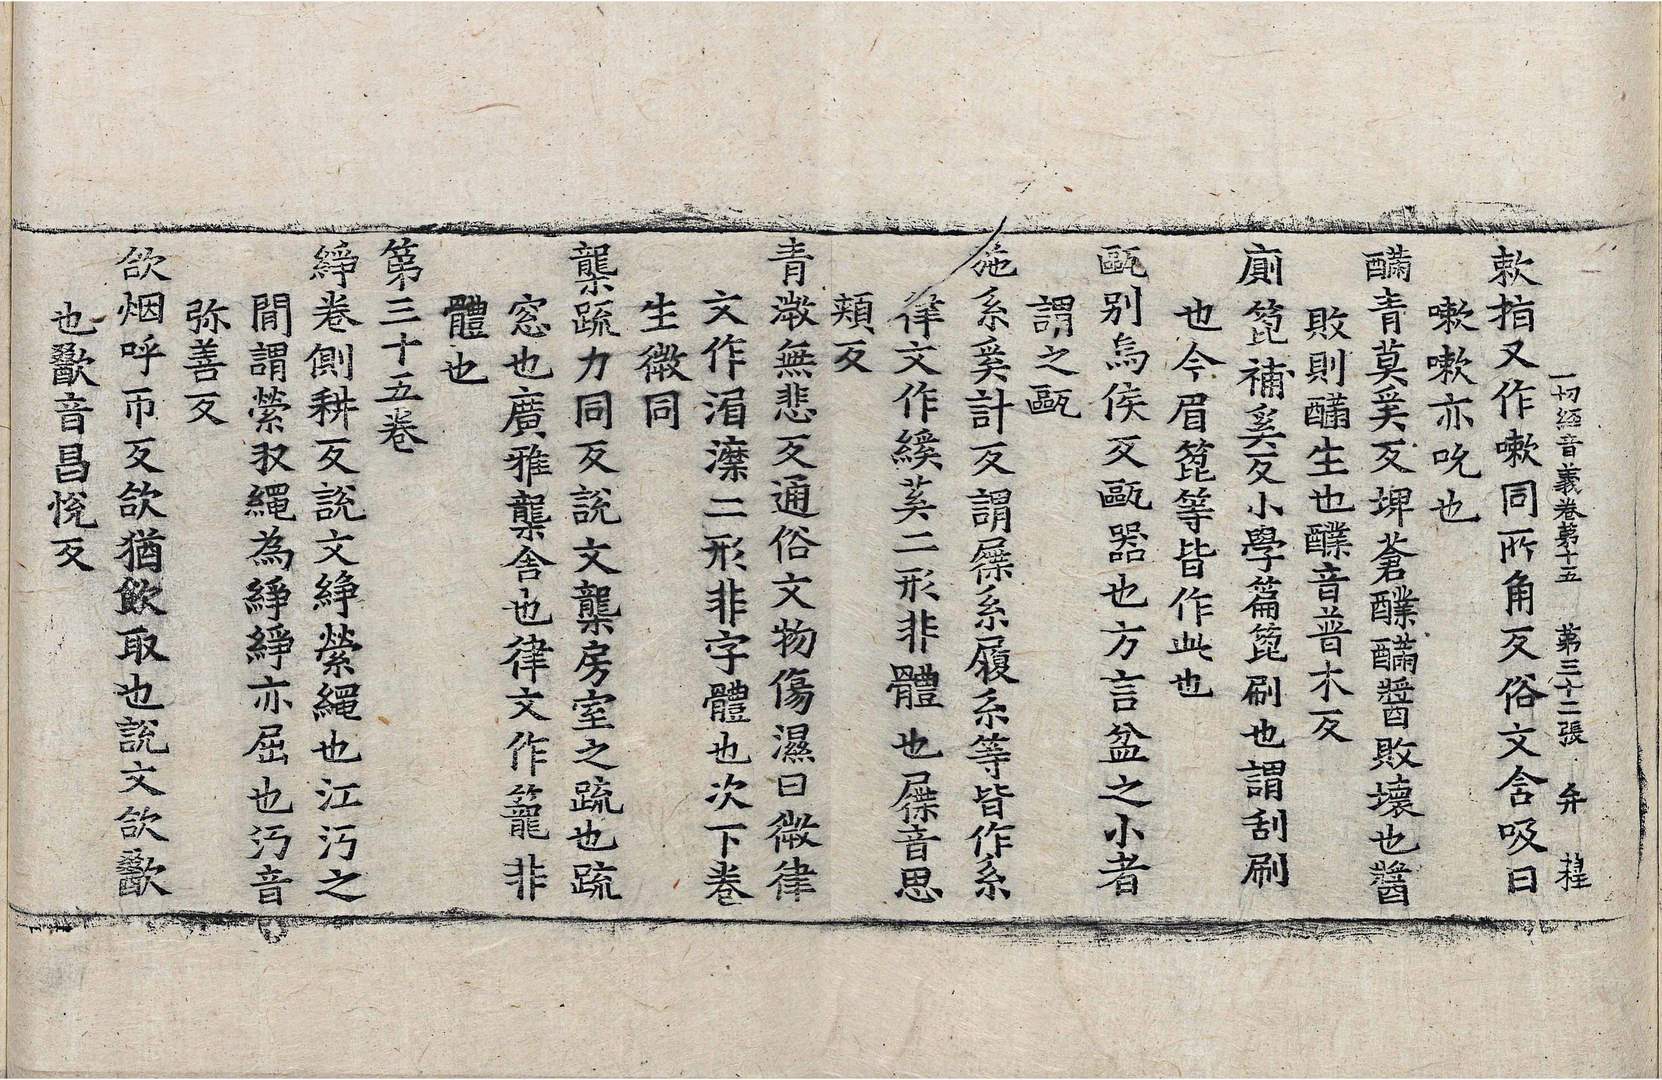 一切經音義卷第十五 第三十二張 弁
欶指又作嗽同所角反俗文含吸曰
嗽嗽亦吮也
䤍青莫奚反埤蒼醭䤍醬敗壞也醬
敗則䤍生也醭音普木反
廁箆補奚反小學篇箆刷也謂刮刷
也今眉箆等皆作此也
甌別烏侯反甌器也方言盆之小者
謂之甌
施系奚計反謂屧系履系等皆作系
律文作緱䓈二形非體也屧音思
頰反
青溦無悲反通俗文物傷濕曰溦律
文作湄濛二形非字體也次下卷
生溦同
襲疏力同反說文襲房室之疏也疏
窓也廣雅襲舍也律文作籠非
體也
第三十五卷
綪卷側耕反說文綪縈繩也江沔之
間謂縈収繩為綪綪亦屈也沔音
弥善反
欱烟呼帀反欱猶飲取也說文欱歠
也歠音昌悅反